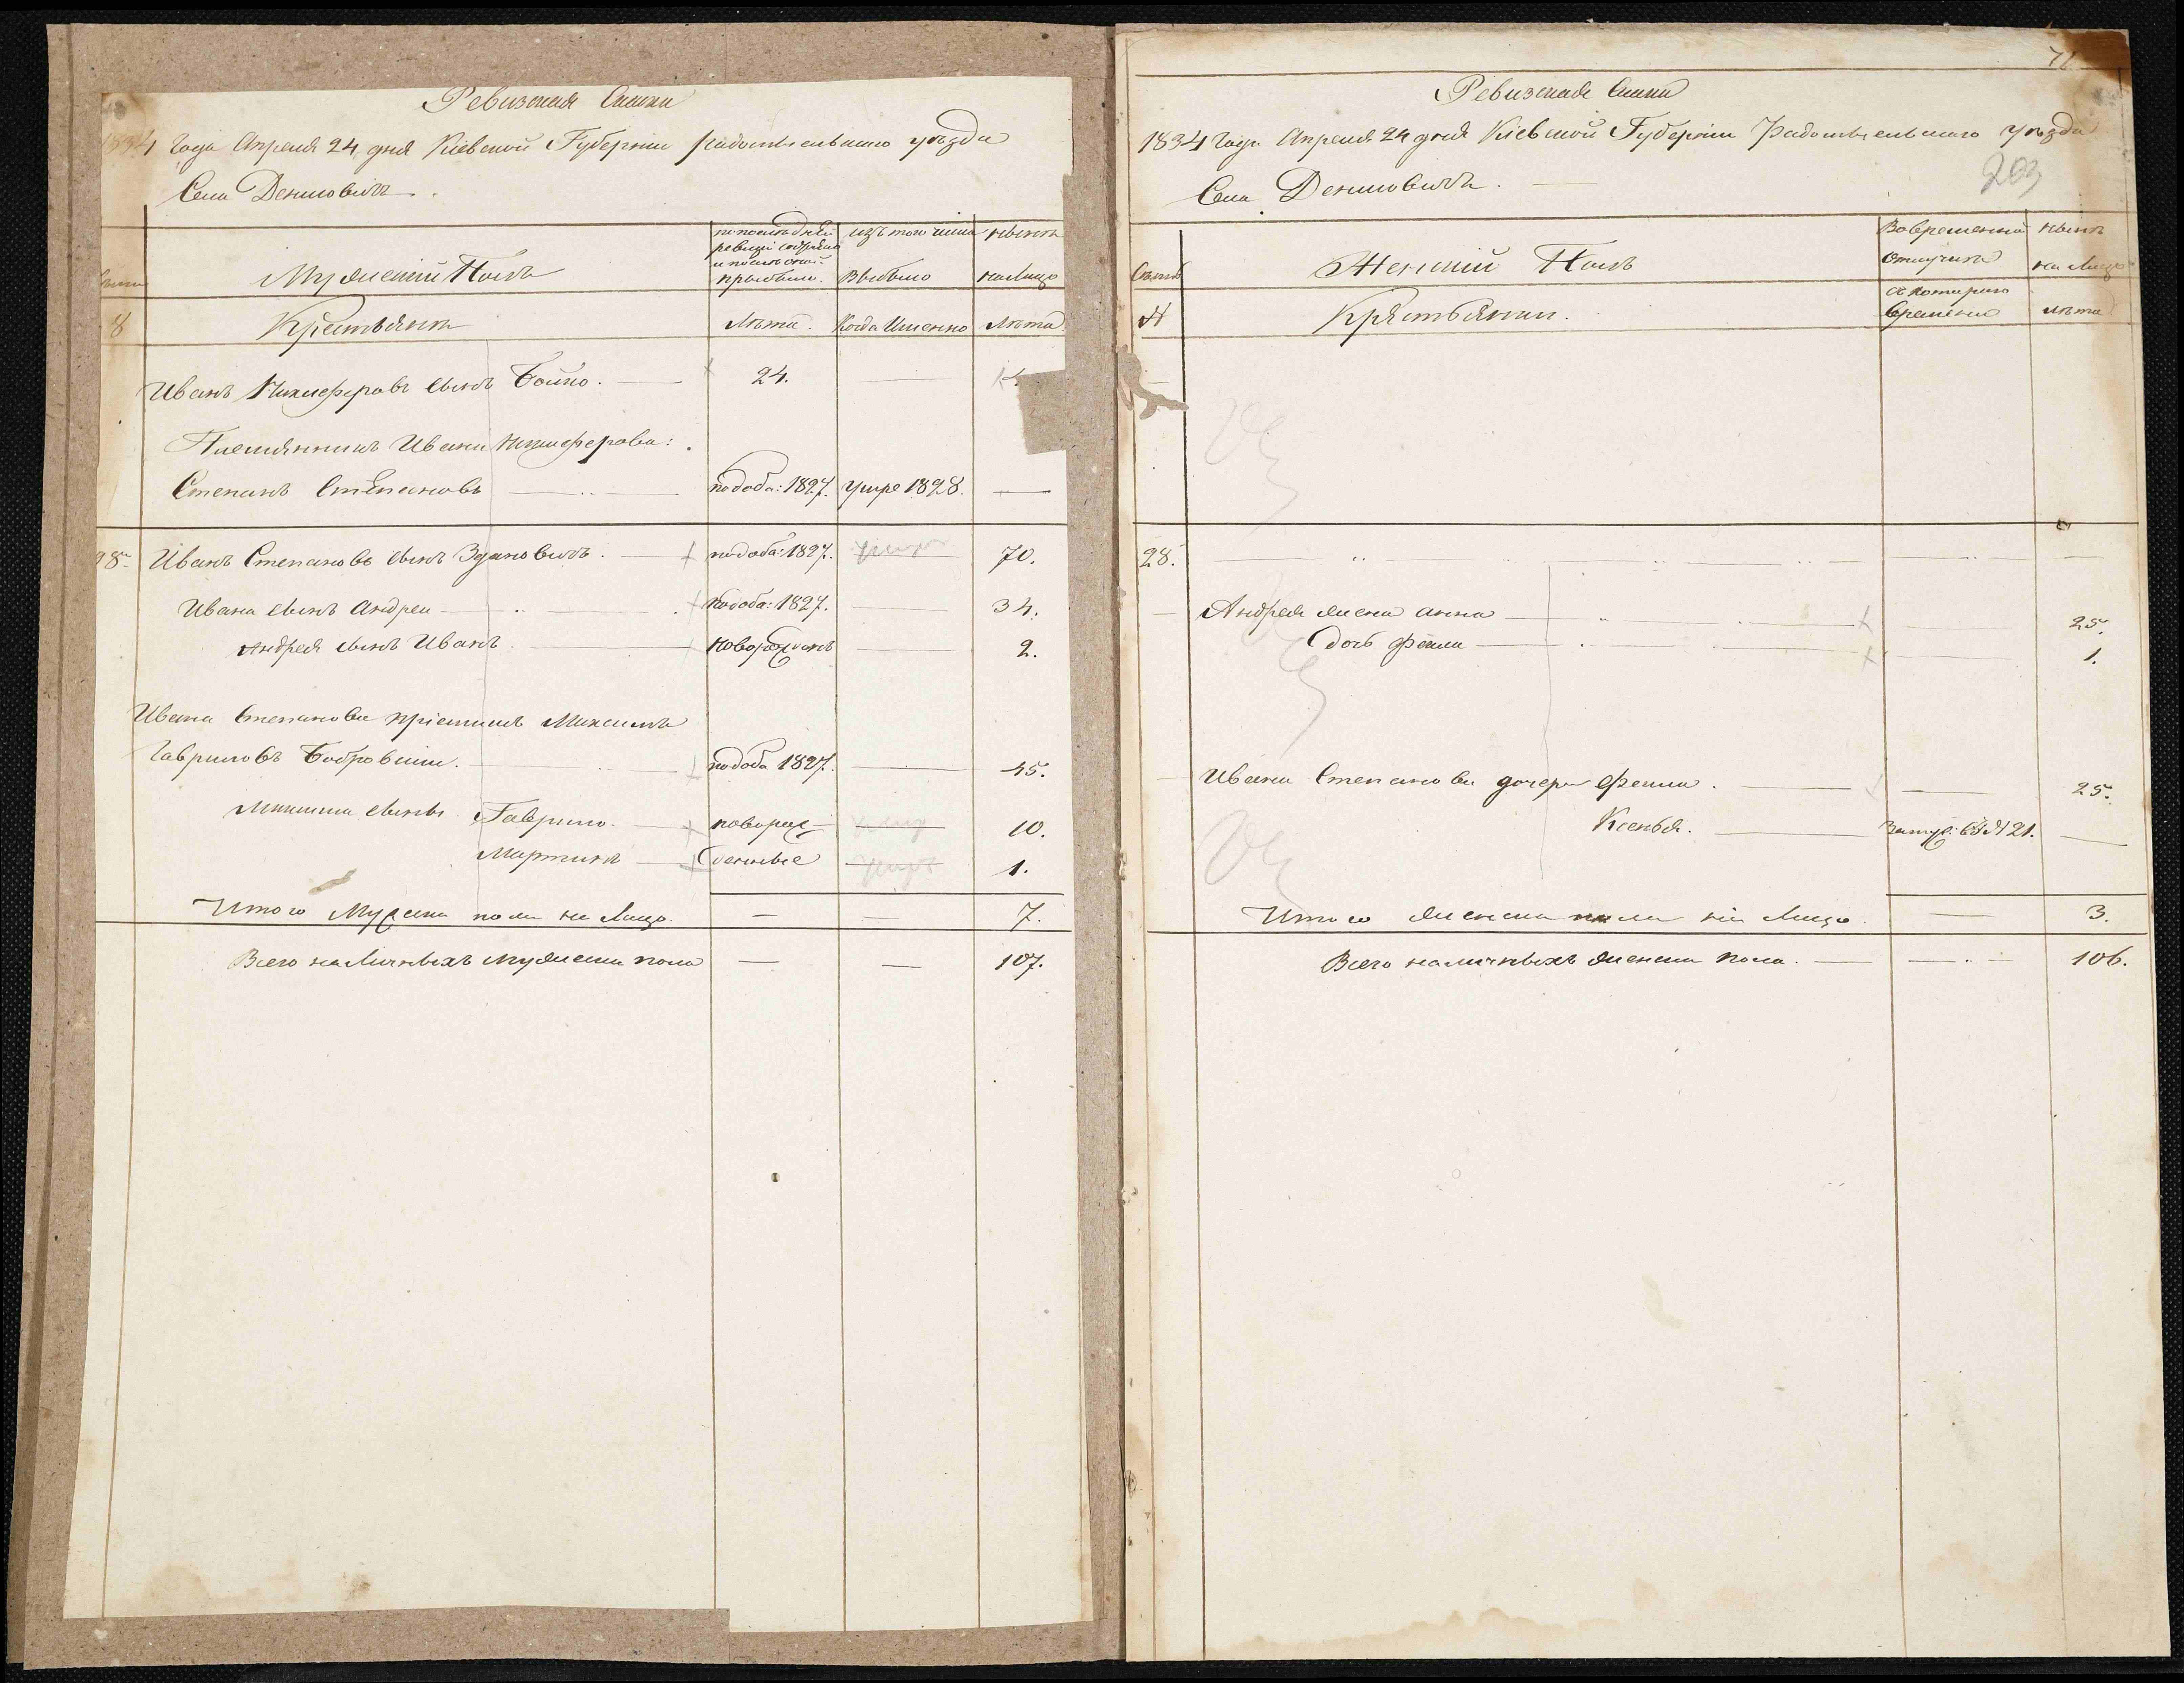 Ревизская Сказка
1834 Года Апреля 24 дня Кіевской Губерніи Радомысльскаго уѣзда
Села Денисовичъ.
Мужеский Полъ
по последней ревизіи состояло и после оной прибыло.
изъ того числа Выбыло
нынѣ на Лицо
Крестьяне
Лѣта.
Когда Именно
Лѣта
Иванъ Никифоровъ сынъ Бойко. 24.
Племянникъ Ивана Никифорова:
Степанъ Степановъ по доба: 1827. умре 1828. —
28. Иванъ Степановъ сынъ Здановичъ. по доба: 1827. 70.
Ивана сынъ Андрей по доба: 1827. 34.
Андрея сынъ Иванъ новорожденъ 2.
Ивана Степанова пріемышъ Максимъ
Гавриловъ Бобровский. по доба 1827. 45.
Максима сыны Гаврило. новорож- 10.
Мартинъ денные 1.
Итого Мужеска пола на Лицо. — — 7.
Всего наличныхъ мужеска пола — — 107.
71
Ревизская Сказка
1834 Года Апреля 24 дня Кіевской Губерніи Радомысльскаго уѣзда
203
Села Денисовичъ.
Женский Полъ
Во временной отлучкѣ
нынѣ на Лицо
№
Крестьянки.
съ котораго времени
лѣта
28.
Андрея жена Анна 25.
дочь Фекла 1.
Ивана Степанова дочери Фекла. 25.
Ксенья. Замуж: въ № 21. —
Итого женска пола на Лицо. — 3.
Всего наличныхъ женска пола. 106.